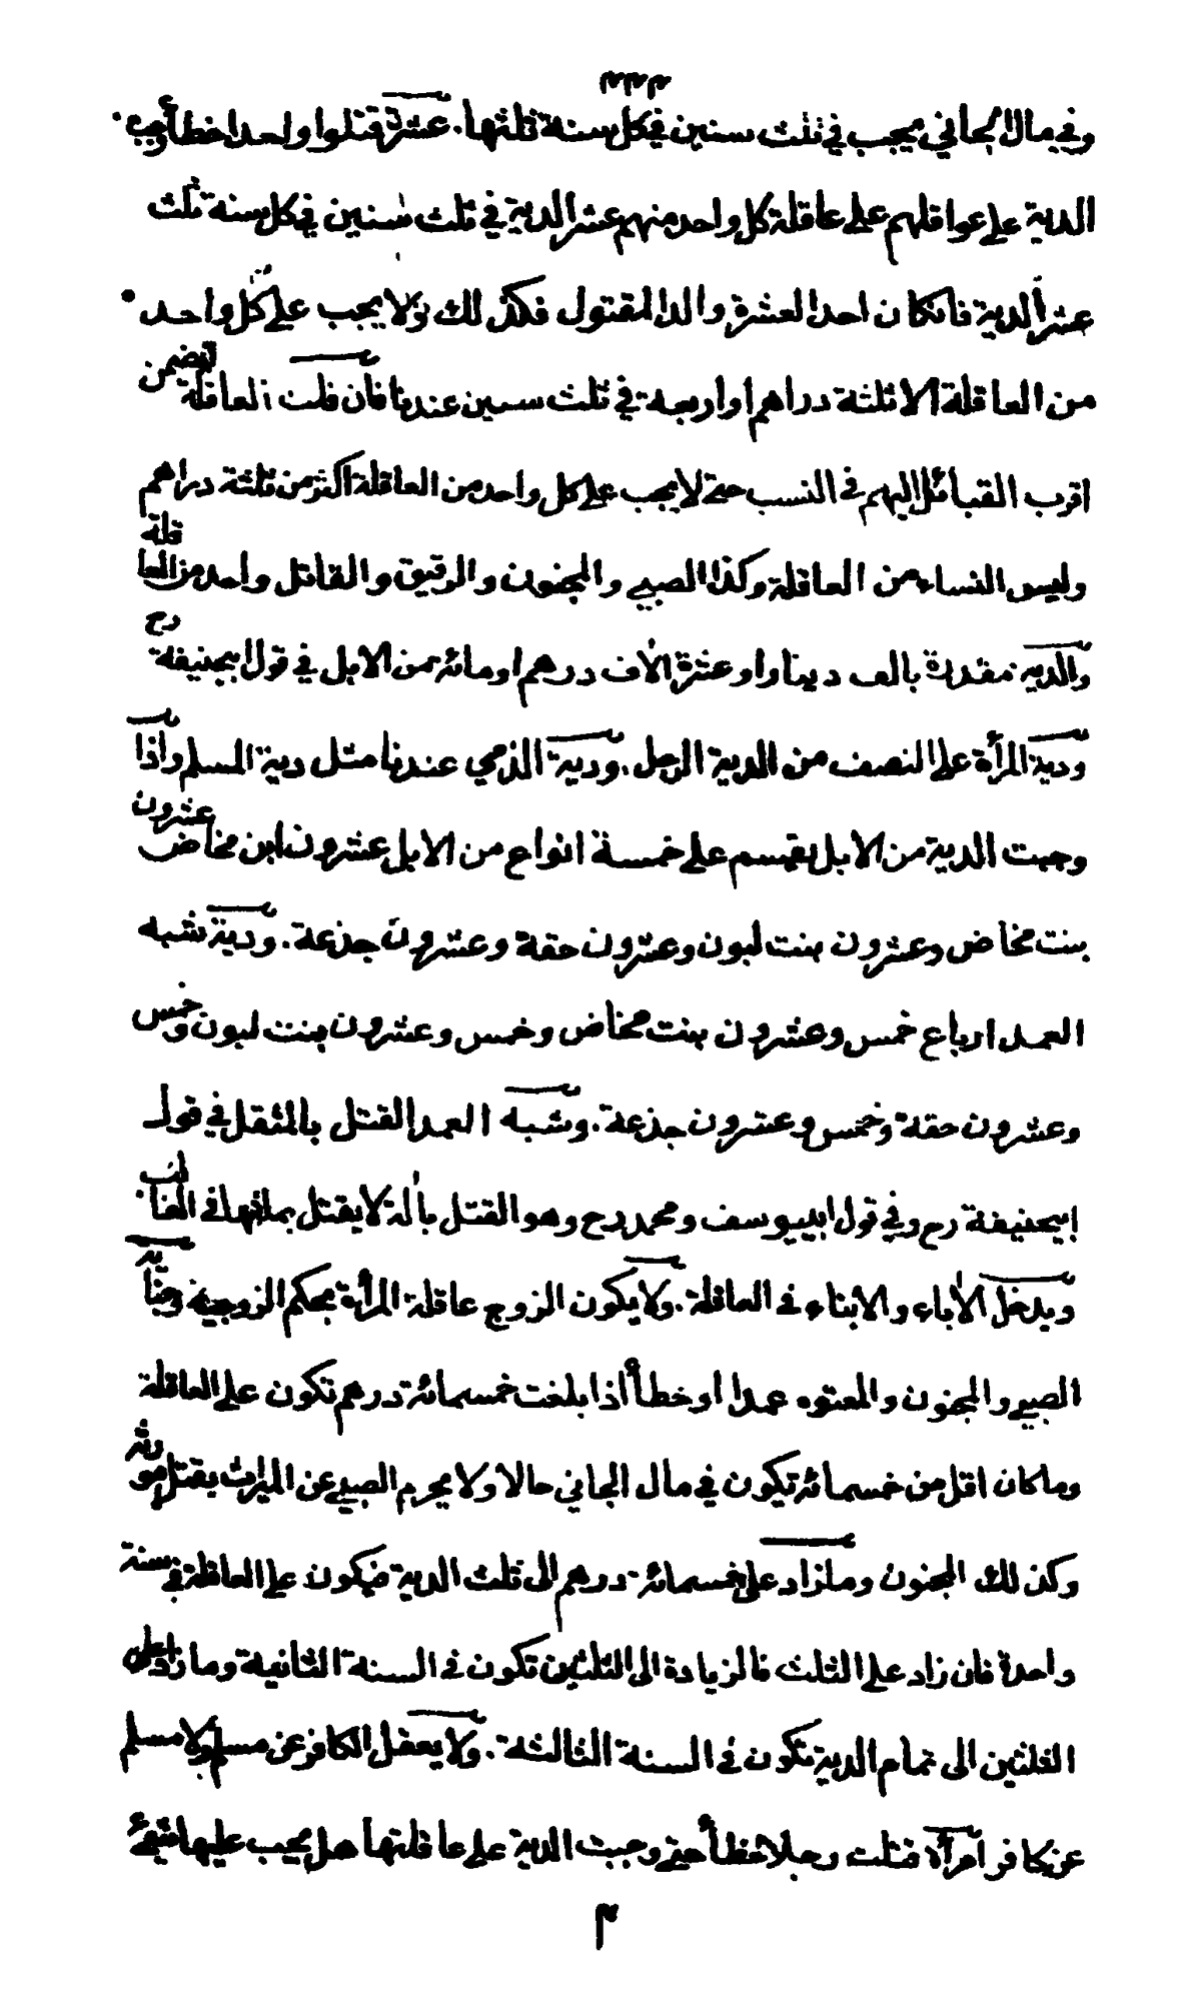 ٣٣٣
وفي مال الجاني يجب في ثلث سنين في كل سنة ثلثها. عشرة قتلوا واحدا خطأ يجب
الدية على عواقلهم على عاقلة كل واحد منهم عشر الدية في ثلث سنين في كل سنة ثلث
عشر الدية فانكان احد العشرة والد المقتول فكذلك ولا يجب على كل واحد
من العاقلة الا ثلثة دراهم او اربعة في ثلث سنين عندنا فان قلت العاقلة تضمن
اقرب القبائل اليهم في النسب حتى لا يجب على كل واحد من العاقلة اكثر من ثلثة دراهم
وليس النساء من العاقلة وكذا الصبي والمجنون والرقيق والقاتل واحد من العاقلة
والدية مقدرة بالف دينار او عشرة الاف درهم او مائة من الابل في قول ابيحنيفة رح
ودية المرأة على النصف من الدية الرجل. ودية الذمي عندنا مثل دية المسلم واذا
وجبت الدية من الابل يقسم على خمسة انواع من الابل عشرون ابن مخاض عشرون
بنت مخاض وعشرون بنت لبون وعشرون حقة وعشرون جذعة. ودية شبه
العمد ارباع خمس وعشرون بنت مخاض وخمس وعشرون بنت لبون وخمس
وعشرون حقة وخمس وعشرون جذعة. وشبه العمد القتل بالمثقل في قول
ابيحنيفة رح وفي قول ابييوسف ومحمد رح وهو القتل بألة لا يقتل بمثلها في الغالب
ويدخل الأباء والابناء في العاقلة. ولا يكون الزوج عاقلة المرأة بحكم الزوجية وجناية
الصبي والمجنون والمعتوه عمدا او خطأ اذا بلغت خمسمائة درهم تكون على العاقلة
وما كان اقل من خمسمائة تكون في مال الجاني حالا ولا يحرم الصبي عن الميراث بقتل مورثه
وكذلك المجنون وما زاد على خمسمائة درهم الى ثلث الدية فيكون على العاقلة في سنة
واحدة فان زاد على الثلث فالزيادة الى الثلثين تكون في السنة الثانية وما زاد على
الثلثين الى تمام الدية تكون في السنة الثالثة. ولا يعقل الكافر عن مسلم ولا مسلم
عن كافر امرأة قتلت رجلا خطأ حتى وجبت الدية على عاقلتها هل يجب عليها شيء